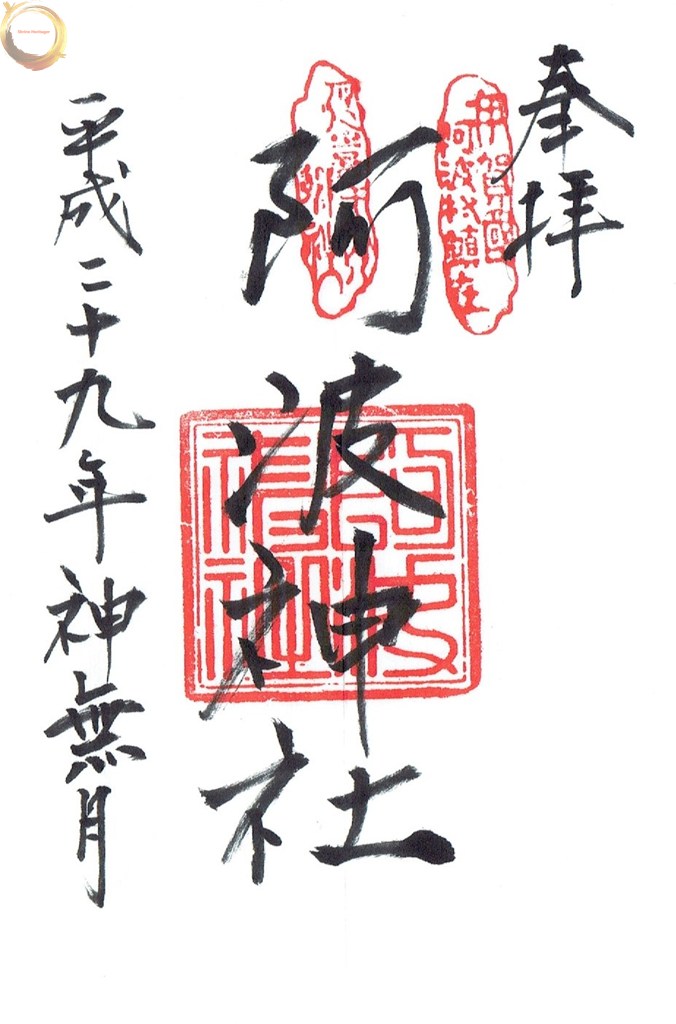 奉拝
伊賀國
阿波村鎮座
阿波神社
平成二十九年神無月